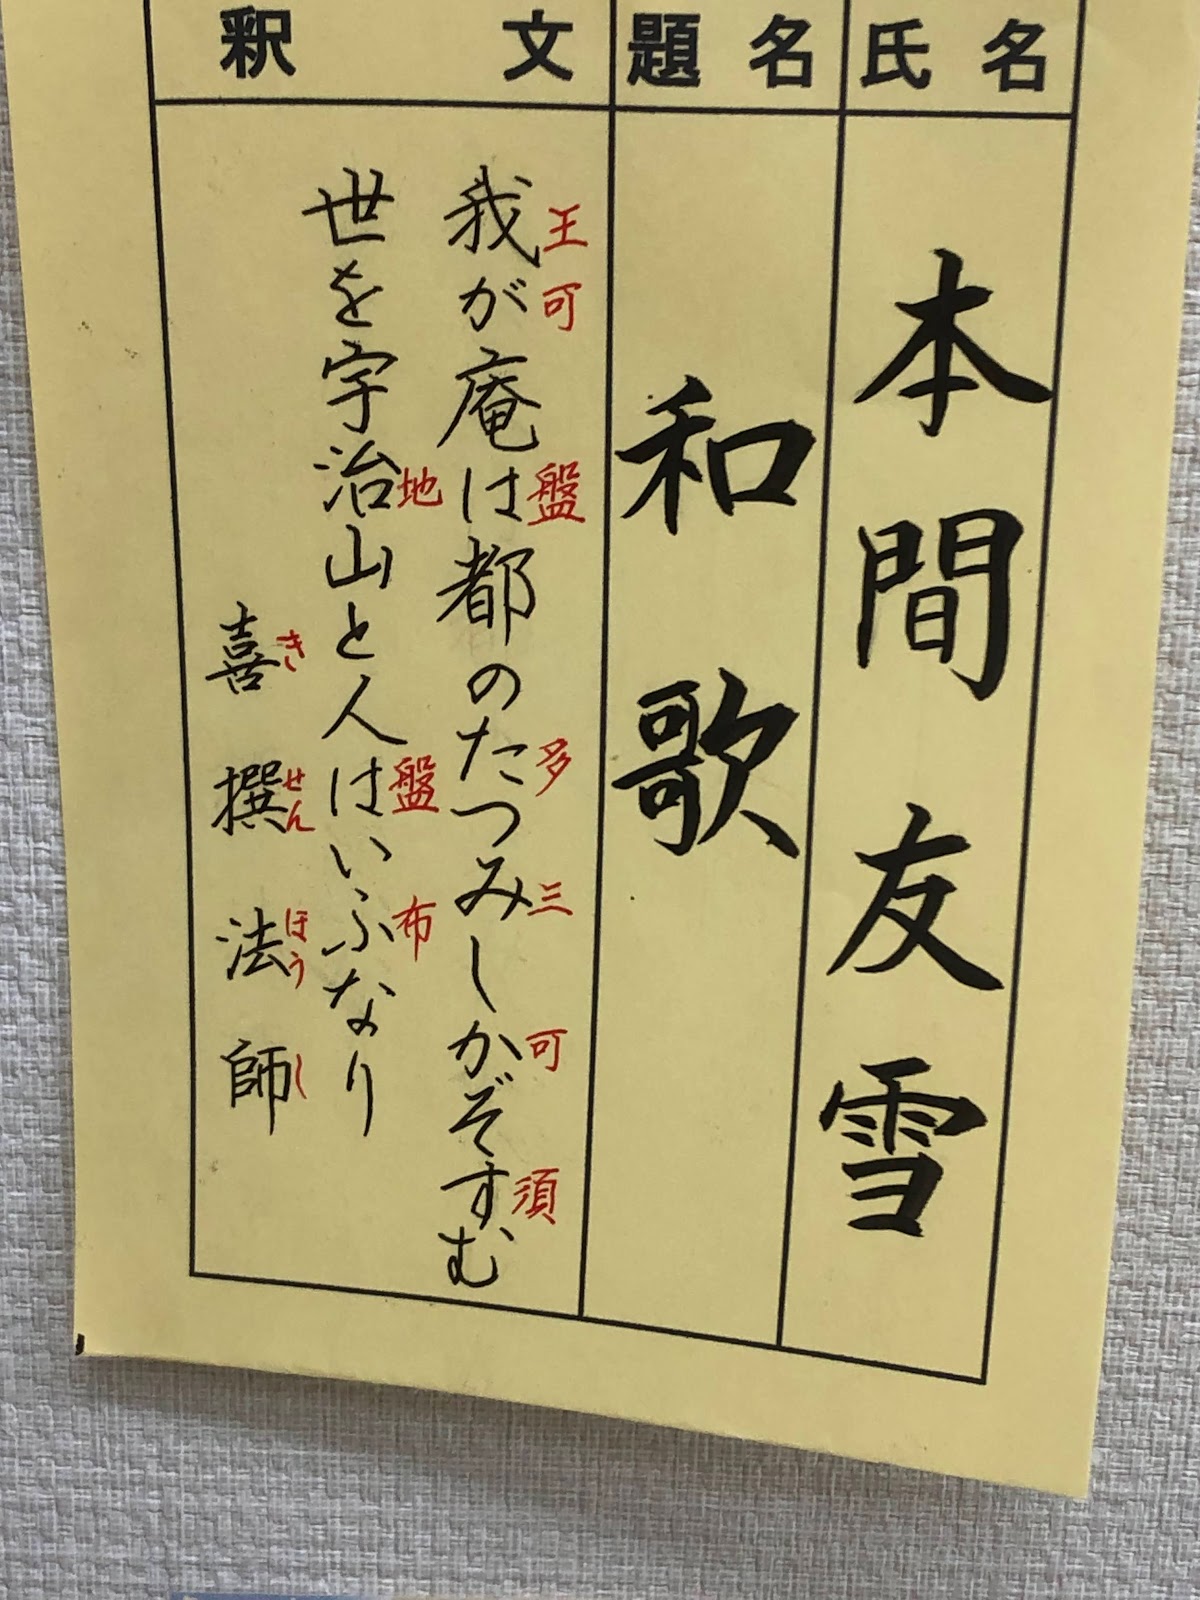 氏名
本間友雪
題名
和歌
釈文
我が庵は都のたつみしかぞすむ
王可盤多三可須
世を宇治山と人はいふなり
地盤布
喜撰法師
きせんほうし